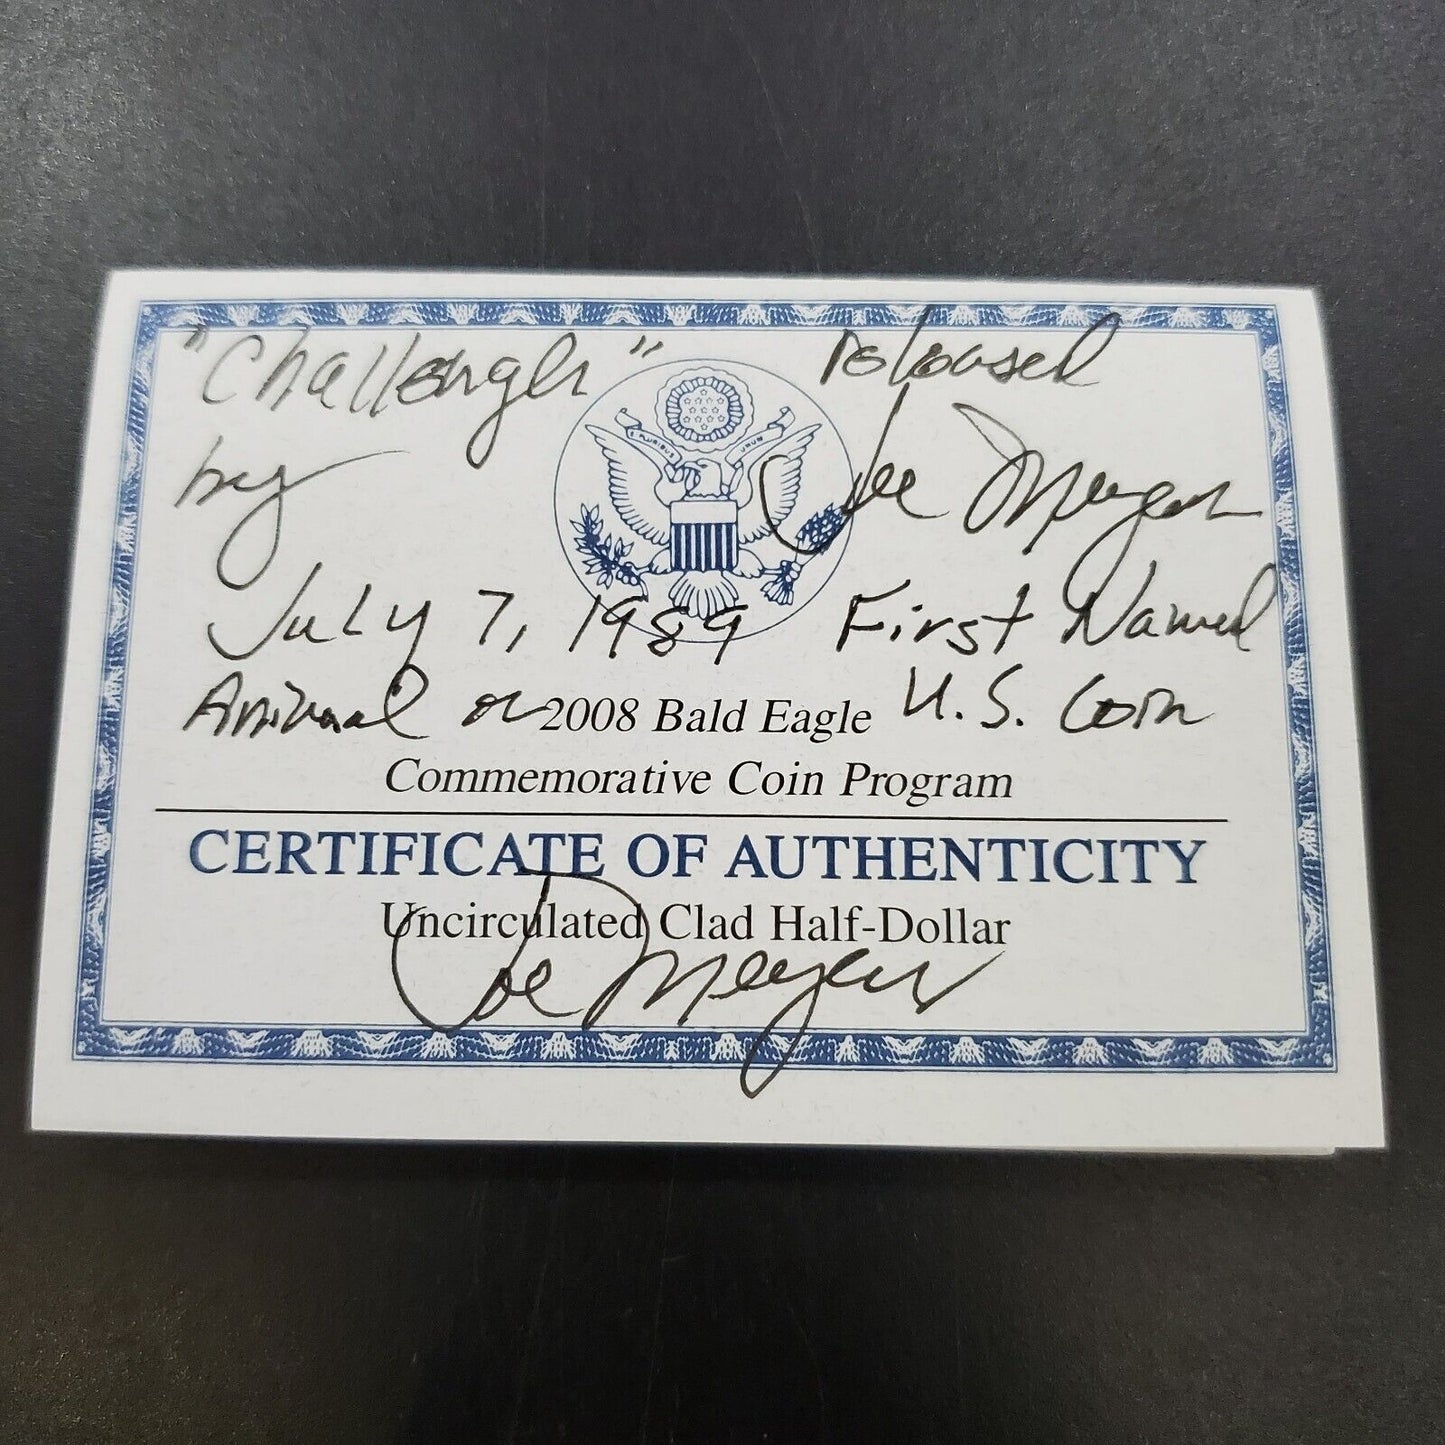 "Challenger" released
by Joe Meyer
E PLURIBUS UNUM
July 7, 1989 First Named
Animal on U.S. Coin
2008 Bald Eagle
Commemorative Coin Program
CERTIFICATE OF AUTHENTICITY
Uncirculated Clad Half-Dollar
Joe Meyer